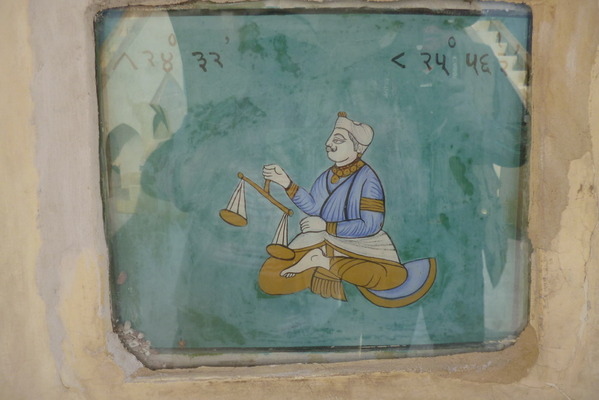 ^ २४° ३२' < २५° ५६'